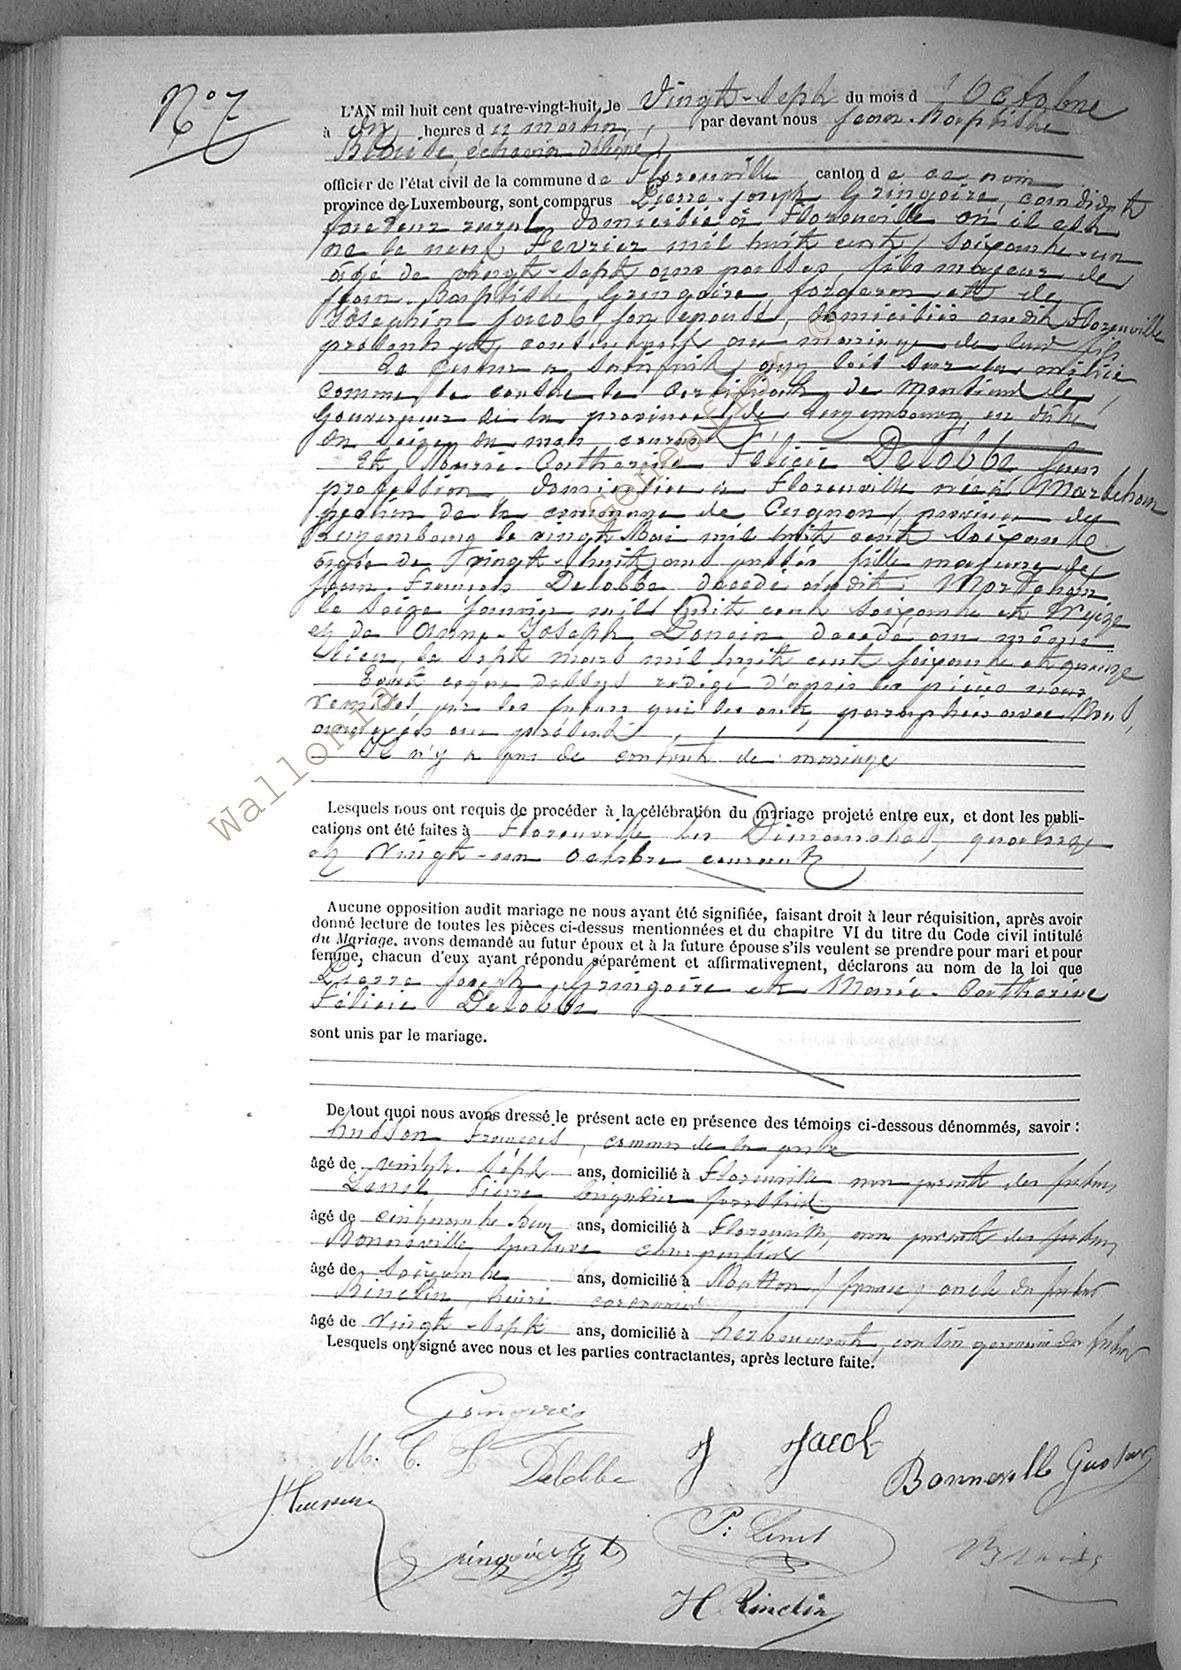 N° 7
L'AN mil huit cent quatre-vingt-huit, le Vingt-Sept du mois d'Octobre
à dix heures du matin, par devant nous Jean-Baptiste
Blaise, échevin délégué
officier de l'état civil de la commune de Florenville canton de ce nom
province de Luxembourg, sont comparus Pierre-Joseph Gringoire, candidat
facteur rural domicilié à Florenville où il est
né le neuf Février mil huit cent soixante-un
âgé de vingt-sept ans passés, fils majeur de
Jean-Baptiste Gringoire, forgeron et de
Joséphine Jacob, son épouse, domiciliés audit Florenville
présents et consentants au mariage de leur fils
Le futur a satisfait aux lois sur la milice
comme le constate le certificat de Monsieur le
Gouverneur de la province de Luxembourg, en date
du seize du mois courant
Et Marie-Catherine Félicie Delobbe sans
profession domiciliée à Florenville née à Martehan
section de la commune de Cugnon, province de
Luxembourg le vingt Mai mil huit cent soixante
âgée de vingt-huit ans passés fille majeure de
Jean-François Delobbe décédé audit Mortehan
le seize Janvier mil huit cent soixante et treize
et de Anne-Joseph décédé au même
lieu, le sept mars mil huit cent soixante et quinze
Tout ce que dessus rédigé d'après les pièces nous
remises par les futurs qui les ont paraphées avec Nous,
annexées au présent
Il n'y a pas de contrat de mariage
Lesquels nous ont requis de procéder à la célébration du mariage projeté entre eux, et dont les publi-
cations ont été faites à Florenville les Dimanches, quatorze
et Vingt-un octobre courant
Aucune opposition audit mariage ne nous ayant été signifiée, faisant droit à leur réquisition, après avoir
donné lecture de toutes les pièces ci-dessus mentionnées et du chapitre VI du titre du Code civil intitulé
du Mariage, avons demandé au futur époux et à la future épouse s'ils veulent se prendre pour mari et pour
femme, chacun d'eux ayant répondu séparément et affirmativement, déclarons au nom de la loi que
Pierre Joseph Gringoire et Marie-Catherine
Félicie Delobbe
sont unis par le mariage.
De tout quoi nous avons dressé le présent acte en présence des témoins ci-dessous dénommés, savoir :
François, commis de la poste
âgé de vingt-sept ans, domicilié à Florenville non parent des futurs
Lenel Pierre brigadier forestier
âgé de cinquante-deux ans, domicilié à Florenville, non parent des futurs
Bonneville Gustave charpentier
âgé de soixante ans, domicilié à Matton (france) oncle du futur
Rinclin, henri cordonnier
âgé de vingt-sept ans, domicilié à herbeumont, cousin germain du futur
Lesquels ont signé avec nous et les parties contractantes, après lecture faite.
Gringoire
M. C. F. Delobbe
J Jacob
Bonneville Gustave
P: Lenel
Gringoire J B
Blaise
H. Rinclin
Wallonia Geneafind ©